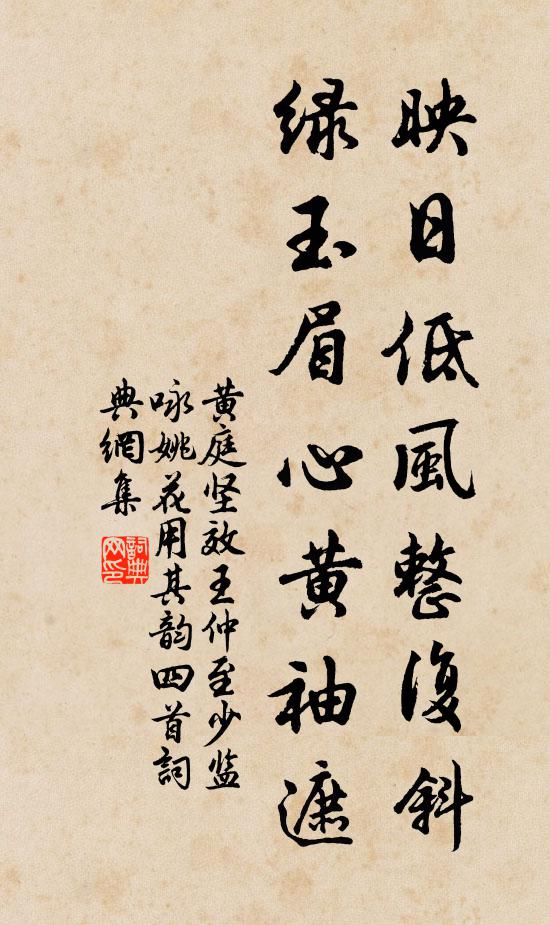 映日低風整復斜
緑玉眉心黄袖遮
黄庭坚效王仲至少监
咏姚花用其韵四首詞
典網集
詞典網印